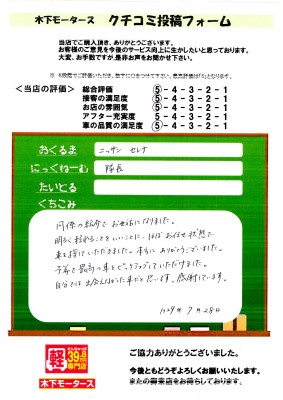 木下モータース クチコミ投稿フォーム
当店でご購入頂き、ありがとうございます。
お客様のご意見を今後のサービス向上に生かしたいと思っております。
大変、お手数ですが、是非お声をお聞かせ下さい。
<当店の評価>
総合評価 ⑤-4-3-2-1
接客の満足度 ⑤-4-3-2-1
お店の雰囲気 ⑤-4-3-2-1
アフター充実度 ⑤-4-3-2-1
車の品質の満足度 ⑤-4-3-2-1
おくるま ニッサン セレナ
にっくねーむ 隊長
たいとる
くちこみ
同僚の紹介で お世話になりました。
明るく話れることをいいことに、ほぼお任せ状態で
車を探していただきました。本当に ありがとうございました。
予算で最高の車をピックアップしていただけました。
自分では 出会えなかった車だと思います。感謝しています。
H29年 7月28日
軽
39.8万円
専門店
木下モータース
ご協力ありがとうございました。
今後ともどうぞよろしくお願いいたします。
またの御来店をお待ちしております。